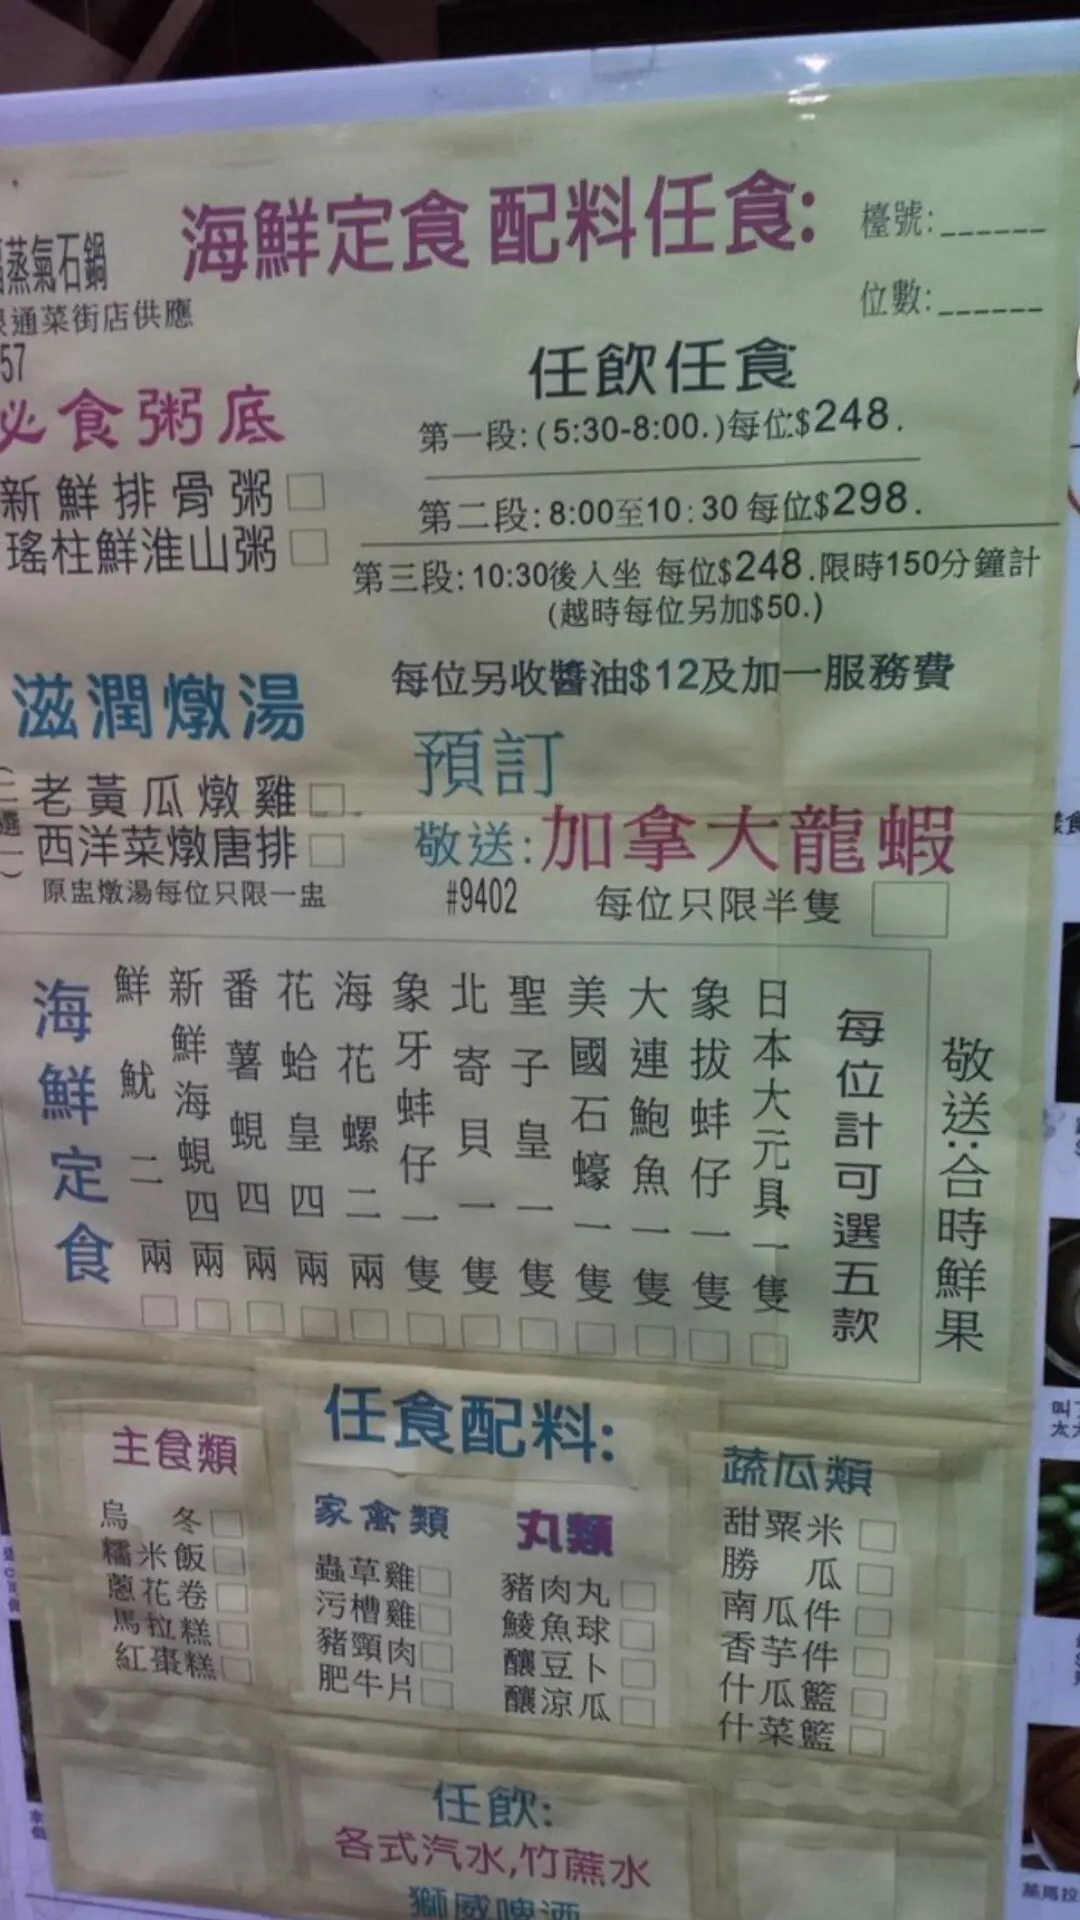 海鮮定食 配料任食:
檯號:______
位數:______
蒸氣石鍋
通菜街店供應
57
必食粥底
新鮮排骨粥
瑤柱鮮淮山粥
任飲任食
第一段:(5:30-8:00.)每位$248.
第二段:8:00至10:30 每位$298.
第三段:10:30後入坐 每位$248.限時150分鐘計
(越時每位另加$50.)
每位另收醬油$12及加一服務費
滋潤燉湯
(二選一)
老黃瓜燉雞
西洋菜燉唐排
原盅燉湯每位只限一盅
預訂
敬送:加拿大龍蝦
#9402 每位只限半隻
海鮮定食
鮮魷二兩
新鮮海蜆四兩
番薯蜆四兩
花蛤皇四兩
海花螺二兩
象牙蚌仔一隻
北寄貝一隻
聖子皇一隻
美國石蠔一隻
大連鮑魚一隻
象拔蚌仔一隻
日本大元具一隻
每位計可選五款
敬送:合時鮮果
任食配料:
主食類
烏冬
糯米飯
蔥花卷
馬拉糕
紅棗糕
家禽類
蟲草雞
污糟雞
豬頸肉
肥牛片
丸類
豬肉丸
鯪魚球
釀豆卜
釀涼瓜
蔬瓜類
甜粟米
勝瓜
南瓜件
香芋件
什瓜籃
什菜籃
任飲:
各式汽水,竹蔗水
獅威啤酒